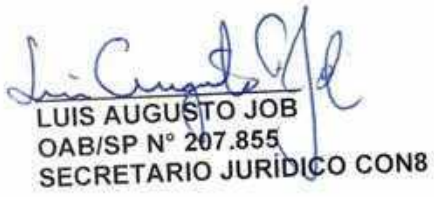 Luis Augusto Job
LUIS AUGUSTO JOB
OAB/SP N° 207.855
SECRETARIO JURÍDICO CON8